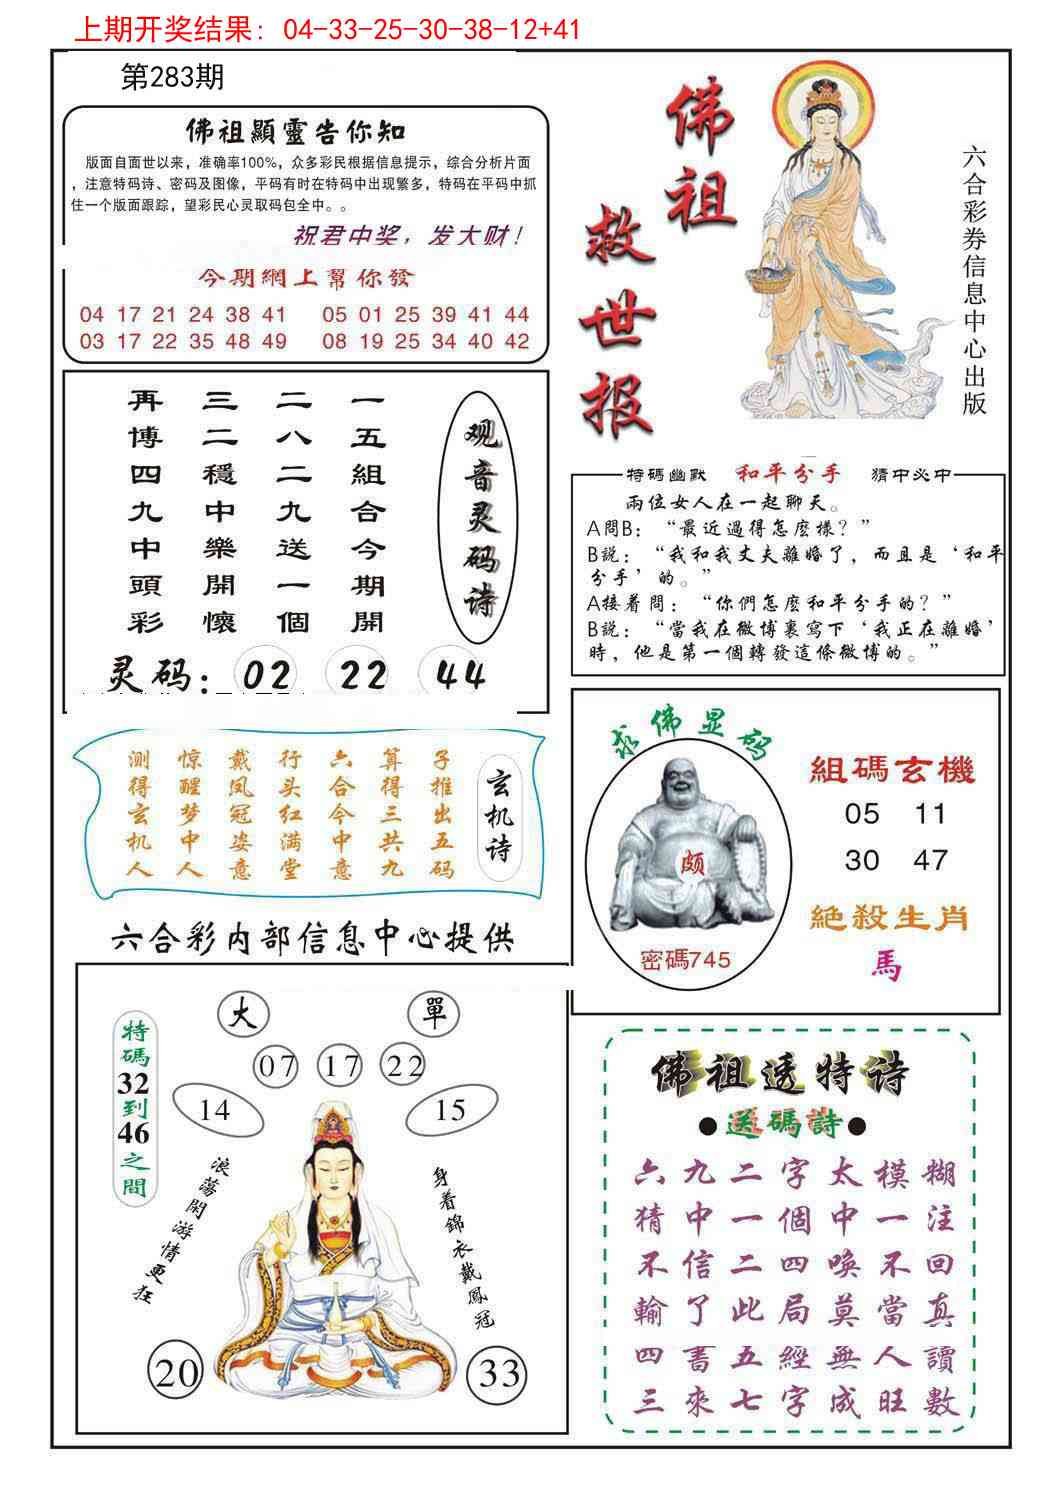 上期开奖结果: 04-33-25-30-38-12+41
第283期
佛祖顯靈告你知
版面自面世以来，准确率100%，众多彩民根据信息提示，综合分析片面
，注意特码诗、密码及图像，平码有时在特码中出现繁多，特码在平码中抓
住一个版面跟踪，望彩民心灵取码包全中。。
祝君中奖，发大财！
今期網上幫你發
04 17 21 24 38 41 05 01 25 39 41 44
03 17 22 35 48 49 08 19 25 34 40 42
佛祖
救世报
六合彩券信息中心出版
观音灵码诗
一五組合今期開
二八二九送一個
三二穩中樂開懷
再博四九中頭彩
灵码：02 22 44
特碼幽默 和平分手 猜中必中
兩位女人在一起聊天。
A問B：“最近過得怎麽樣？”
B説：“我和我丈夫離婚了，而且是‘和平
分手’的。”
A接着問：“你們怎麽和平分手的？”
B説：“當我在微博裏寫下‘我正在離婚’
時，他是第一個轉發這條微博的。”
玄机诗
子推出五码
算得三共九
六合今中意
行头红满堂
戴凤冠姿意
惊醒梦中人
测得玄机人
求佛显码
颇
密碼745
組碼玄機
05 11
30 47
絶殺生肖
馬
六合彩内部信息中心提供
大 單
07 17 22
14 15
特碼32到46之間
浪蕩閑游情更狂
身着錦衣戴鳳冠
20 33
佛祖透特诗
●送碼詩●
六九二字太模糊
猜中一個中一注
不信二四唤不回
輸了此局莫當真
四書五經無人讀
三來七字成旺數